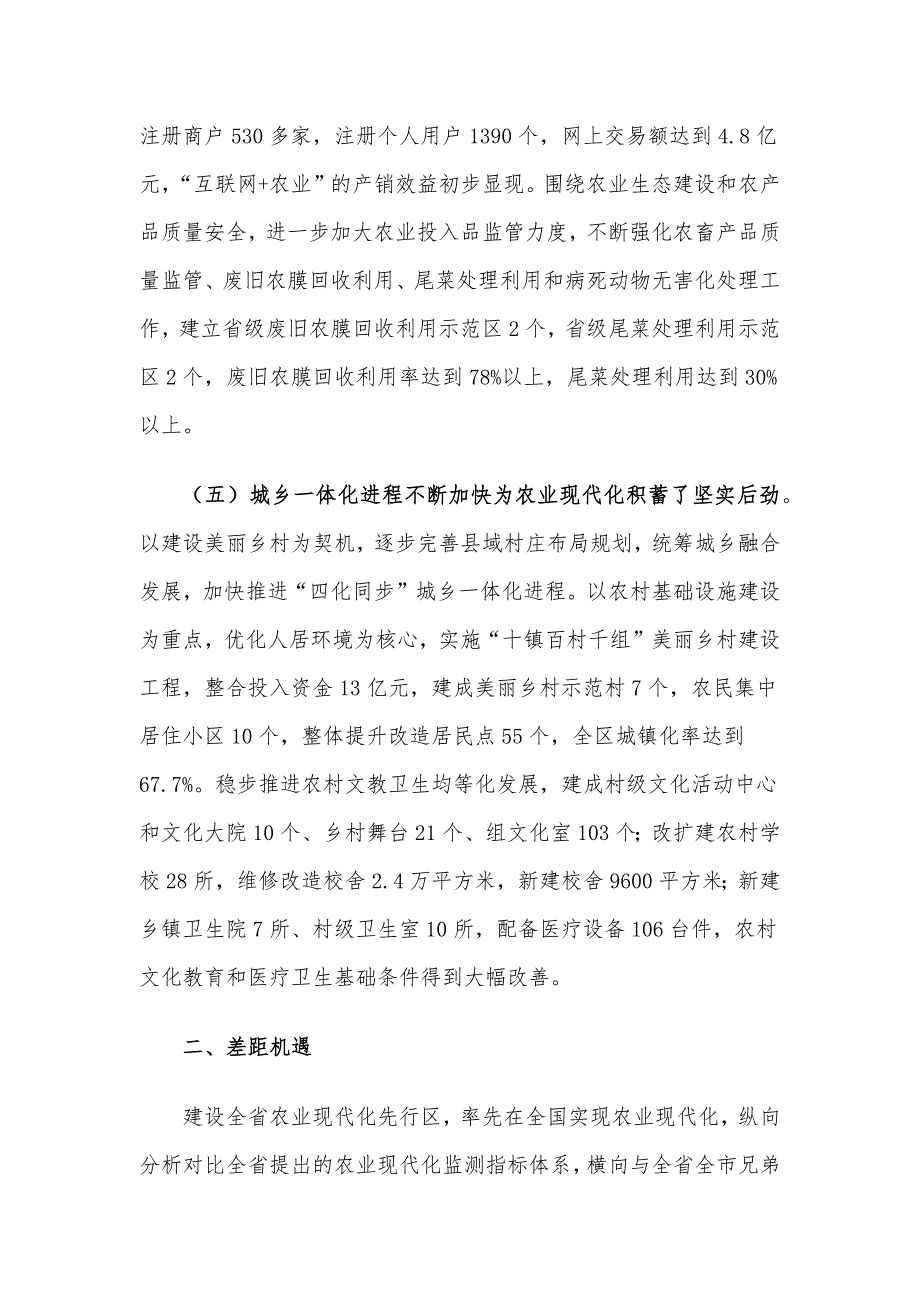 注册商户 530 多家，注册个人用户 1390 个，网上交易额达到 4.8 亿
元，“互联网+农业”的产销效益初步显现。围绕农业生态建设和农产
品质量安全，进一步加大农业投入品监管力度，不断强化农畜产品质
量监管、废旧农膜回收利用、尾菜处理利用和病死动物无害化处理工
作，建立省级废旧农膜回收利用示范区 2 个，省级尾菜处理利用示范
区 2 个，废旧农膜回收利用率达到 78%以上，尾菜处理利用达到 30%
以上。
（五）城乡一体化进程不断加快为农业现代化积蓄了坚实后劲。
以建设美丽乡村为契机，逐步完善县域村庄布局规划，统筹城乡融合
发展，加快推进“四化同步”城乡一体化进程。以农村基础设施建设
为重点，优化人居环境为核心，实施“十镇百村千组”美丽乡村建设
工程，整合投入资金 13 亿元，建成美丽乡村示范村 7 个，农民集中
居住小区 10 个，整体提升改造居民点 55 个，全区城镇化率达到
67.7%。稳步推进农村文教卫生均等化发展，建成村级文化活动中心
和文化大院 10 个、乡村舞台 21 个、组文化室 103 个；改扩建农村学
校 28 所，维修改造校舍 2.4 万平方米，新建校舍 9600 平方米；新建
乡镇卫生院 7 所、村级卫生室 10 所，配备医疗设备 106 台件，农村
文化教育和医疗卫生基础条件得到大幅改善。
二、差距机遇
建设全省农业现代化先行区，率先在全国实现农业现代化，纵向
分析对比全省提出的农业现代化监测指标体系，横向与全省全市兄弟